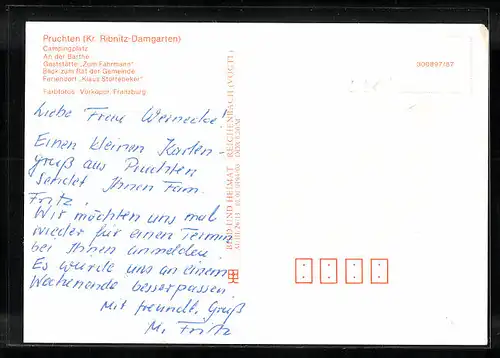 Pruchten (Kr. Ribnitz-Damgarten)
Campingplatz
An der Barthe
Gaststätte „Zum Fährmann"
Blick zum Rat der Gemeinde
Feriendorf „Klaus Störtebeker"
Farbfotos: Vorköper,
000897/87
Liebe Frau Wernecke!
Einen kleinen Karten-
gruß aus Pruchten
sendet Ihnen Fam.
Fritz.
Wir möchten uns mal
wieder für einen Termin
bei Ihnen anmelden.
Es würde uns an einem
Wochenende besser passen.
Mit freundl. Gruß
M. Fritz
BILD UND HEIMAT REICHENBACH (VOGTL)